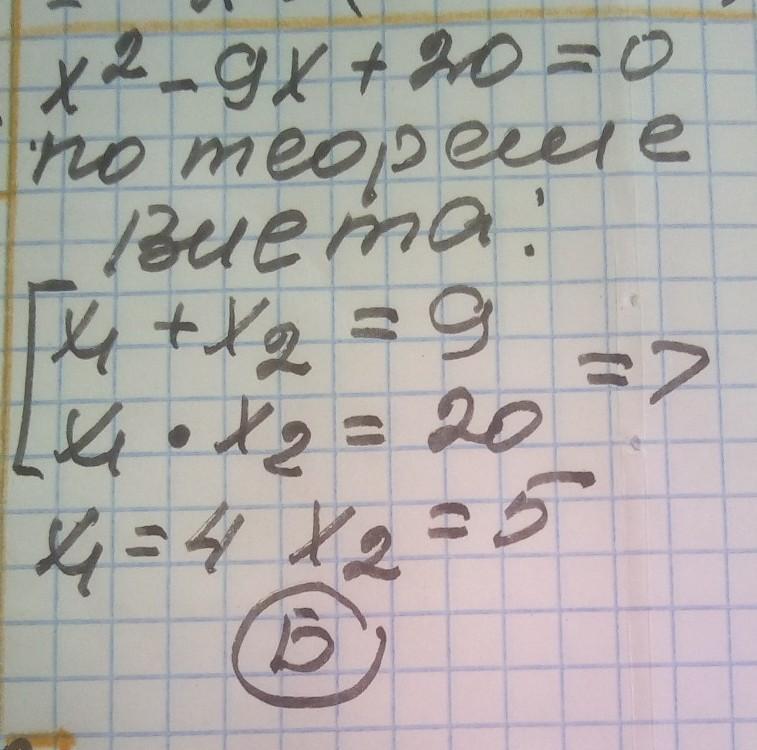 x² - 9x + 20 = 0
по теореме
Виета:
x₁ + x₂ = 9
=>
x₁ • x₂ = 20
x₁ = 4 x₂ = 5
Б